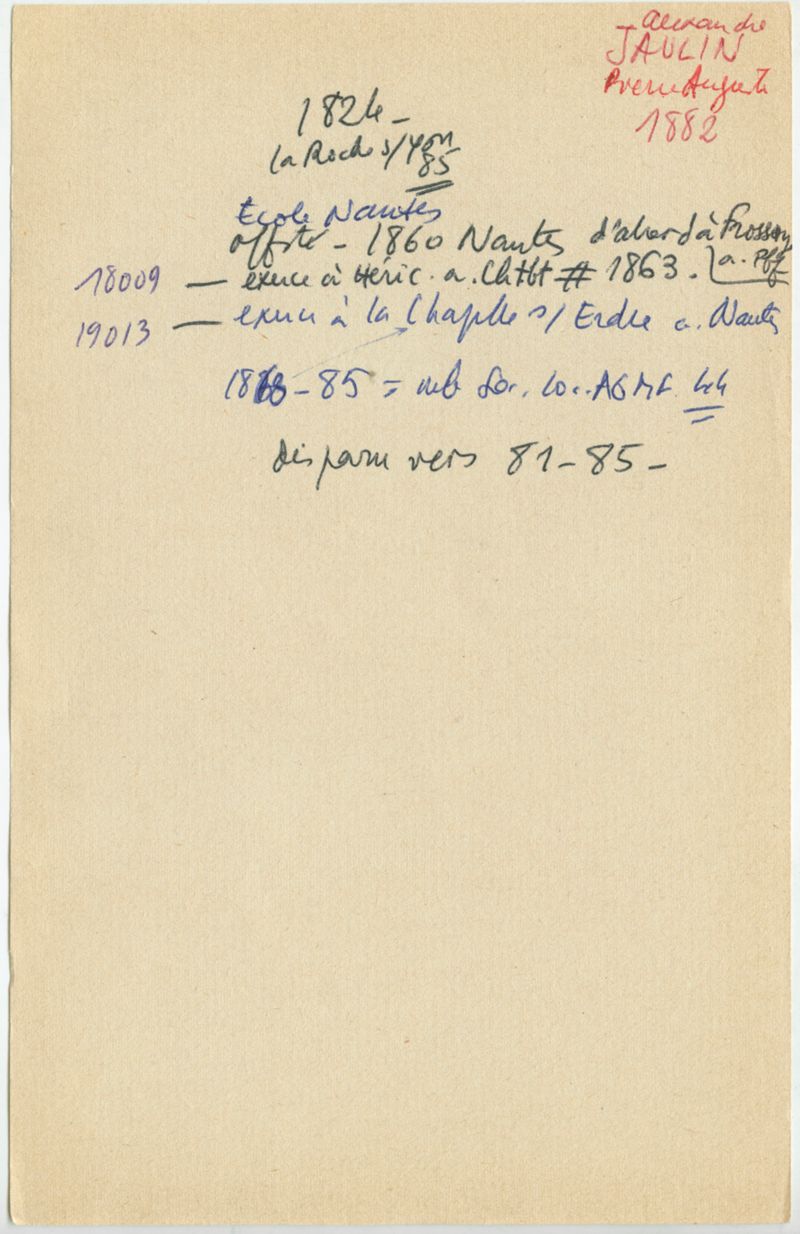 Alexandre
JAULIN
Pierre Auguste
1882
1824 –
la Roche s/Yon
85
Ecole Nantes
offste – 1860 Nantes d'abord à Frossay
18009 — exerce à Héric. a. Chtbt # 1863. a. Pff
19013 — exerce à la Chapelle s/ Erdre a. Nantes
– 85 = mb Soc. loc. AGMF 44
disparu vers 81 – 85 –